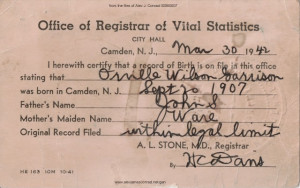 from the files of Alan J. Conrad
Office of Registrar of Vital Statistics
CITY HALL
Camden, N. J., Mar 30 1942
I herewith certify that a record of Birth is on file in this office
stating that Orville Wilson Garrison
was born in Camden, N. J., Sept 20 1907
Father's Name John S
Mother's Maiden Name Ware
Original Record Filed within legal limit
A. L. STONE, M.D., Registrar
By